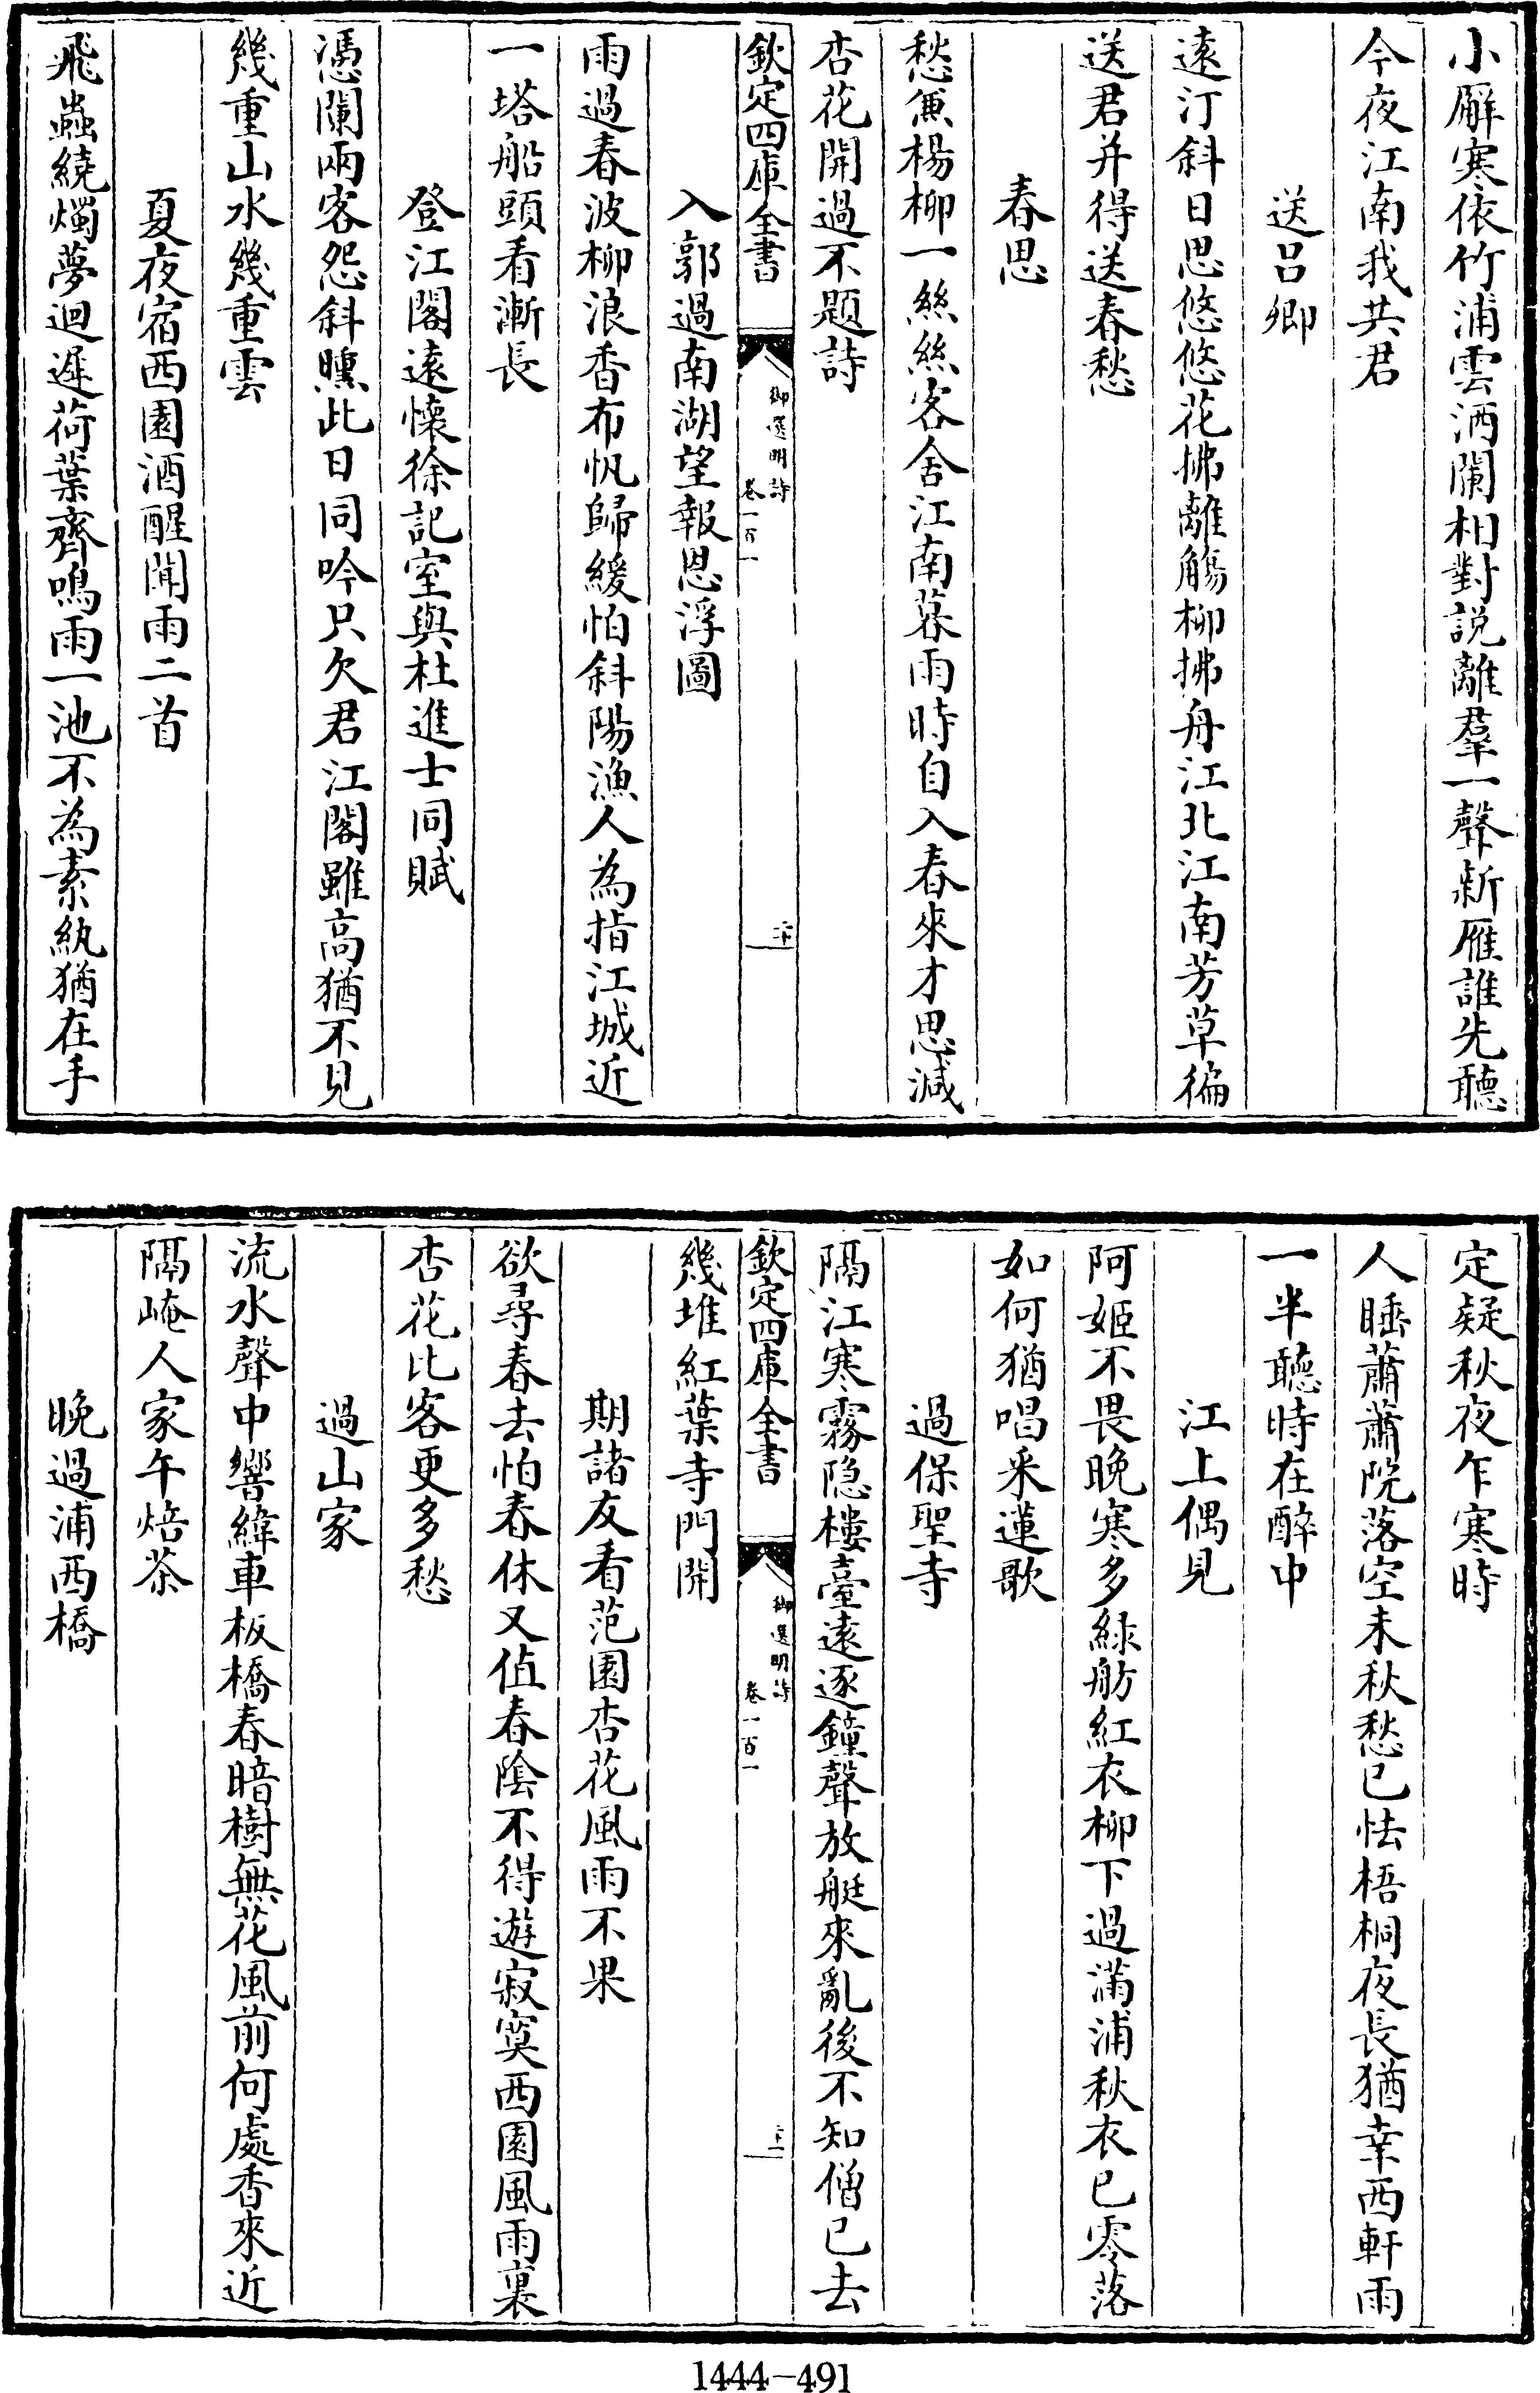 小廨寒依竹浦雲酒闌相對説離羣一聲新雁誰先聽
今夜江南我共君
送吕卿
遠汀斜日思悠悠花拂離觴柳拂舟江北江南芳草徧
送君并得送春愁
春思
愁兼楊柳一絲絲客舍江南暮雨時自入春來才思減
杏花開過不題詩
欽定四庫全書
御選明詩
卷一百一
二十
入郭過南湖望報恩浮圖
雨過春波柳浪香布帆歸緩怕斜陽漁人為指江城近
一塔船頭看漸長
登江閣遠懷徐記室與杜進士同賦
憑闌兩客怨斜曛此日同吟只欠君江閣雖高猶不見
幾重山水幾重雲
夏夜宿西園酒醒聞雨二首
飛蟲繞燭夢迴遲荷葉齊鳴雨一池不為素紈猶在手
定疑秋夜乍寒時
人睡蕭蕭院落空未秋愁已怯梧桐夜長猶幸西軒雨
一半聽時在醉中
江上偶見
阿姬不畏晚寒多緑舫紅衣柳下過滿浦秋衣已零落
如何猶唱采蓮歌
過保聖寺
隔江寒霧隐樓臺遠逐鐘聲放艇來亂後不知僧已去
欽定四庫全書
御選明詩
卷一百一
二十一
幾堆紅葉寺門開
期諸友看范園杏花風雨不果
欲尋春去怕春休又值春陰不得遊寂寞西園風雨裏
杏花比客更多愁
過山家
流水聲中響緯車板橋春暗樹無花風前何處香來近
隔崦人家午焙茶
晚過浦西橋
1444-491